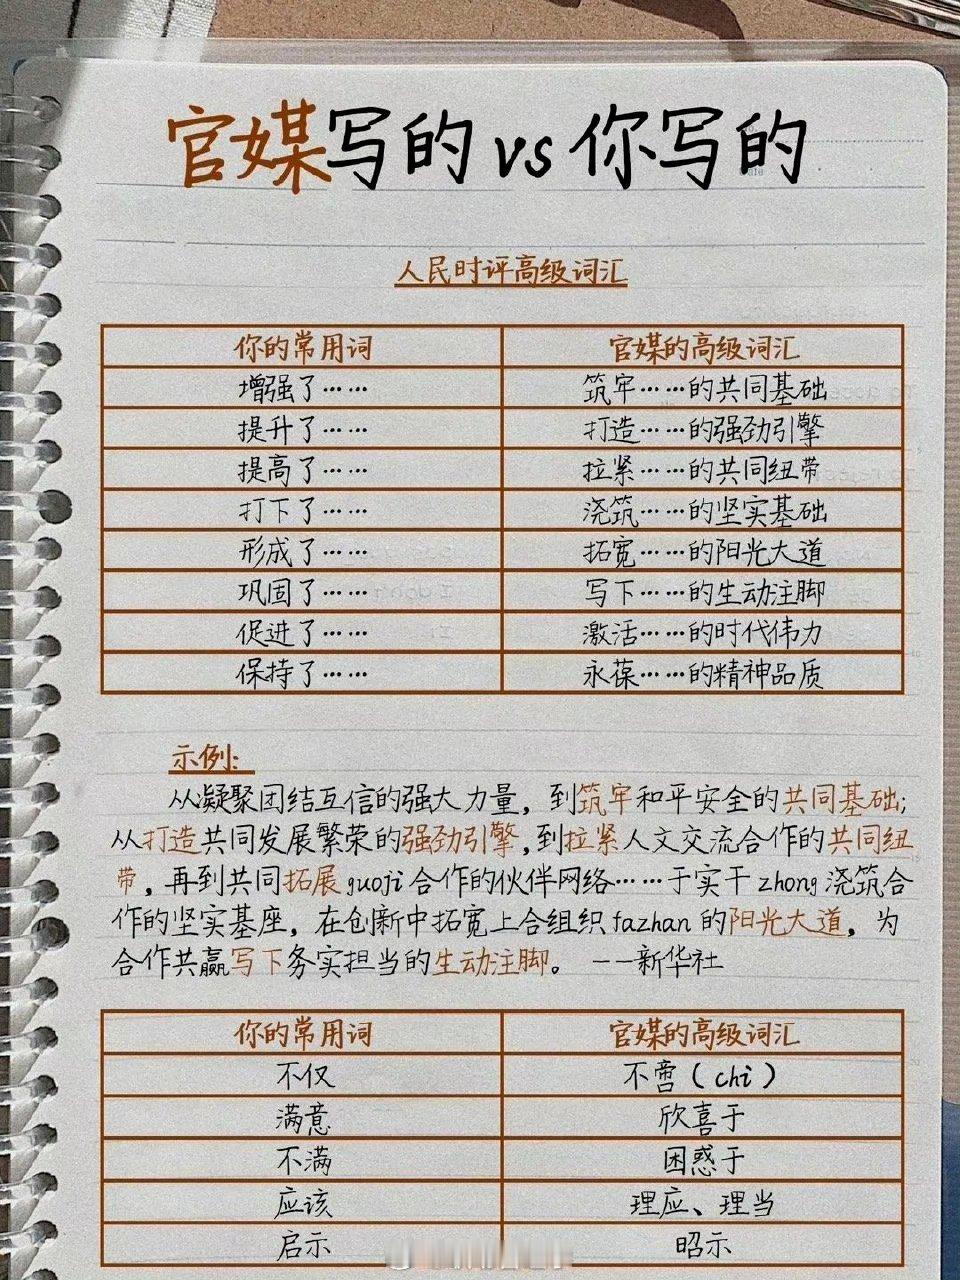 官媒写的 vs 你写的
人民时评高级词汇
你的常用词 官媒的高级词汇
增强了…… 筑牢……的共同基础
提升了…… 打造……的强劲引擎
提高了…… 拉紧……的共同纽带
打下了…… 浇筑……的坚实基础
形成了…… 拓宽……的阳光大道
巩固了…… 写下……的生动注脚
促进了…… 激活……的时代伟力
保持了…… 永葆……的精神品质
示例:
从凝聚团结互信的强大力量，到筑牢和平安全的共同基础;
从打造共同发展繁荣的强劲引擎,到拉紧人文交流合作的共同纽
带，再到共同拓展guoji合作的伙伴网络……于实干zhong浇筑合
作的坚实基座，在创新中拓宽上合组织fazhan的阳光大道，为
合作共赢写下务实担当的生动注脚。 --新华社
你的常用词 官媒的高级词汇
不仅 不啻(chi)
满意 欣喜于
不满 困惑于
应该 理应、理当
启示 昭示